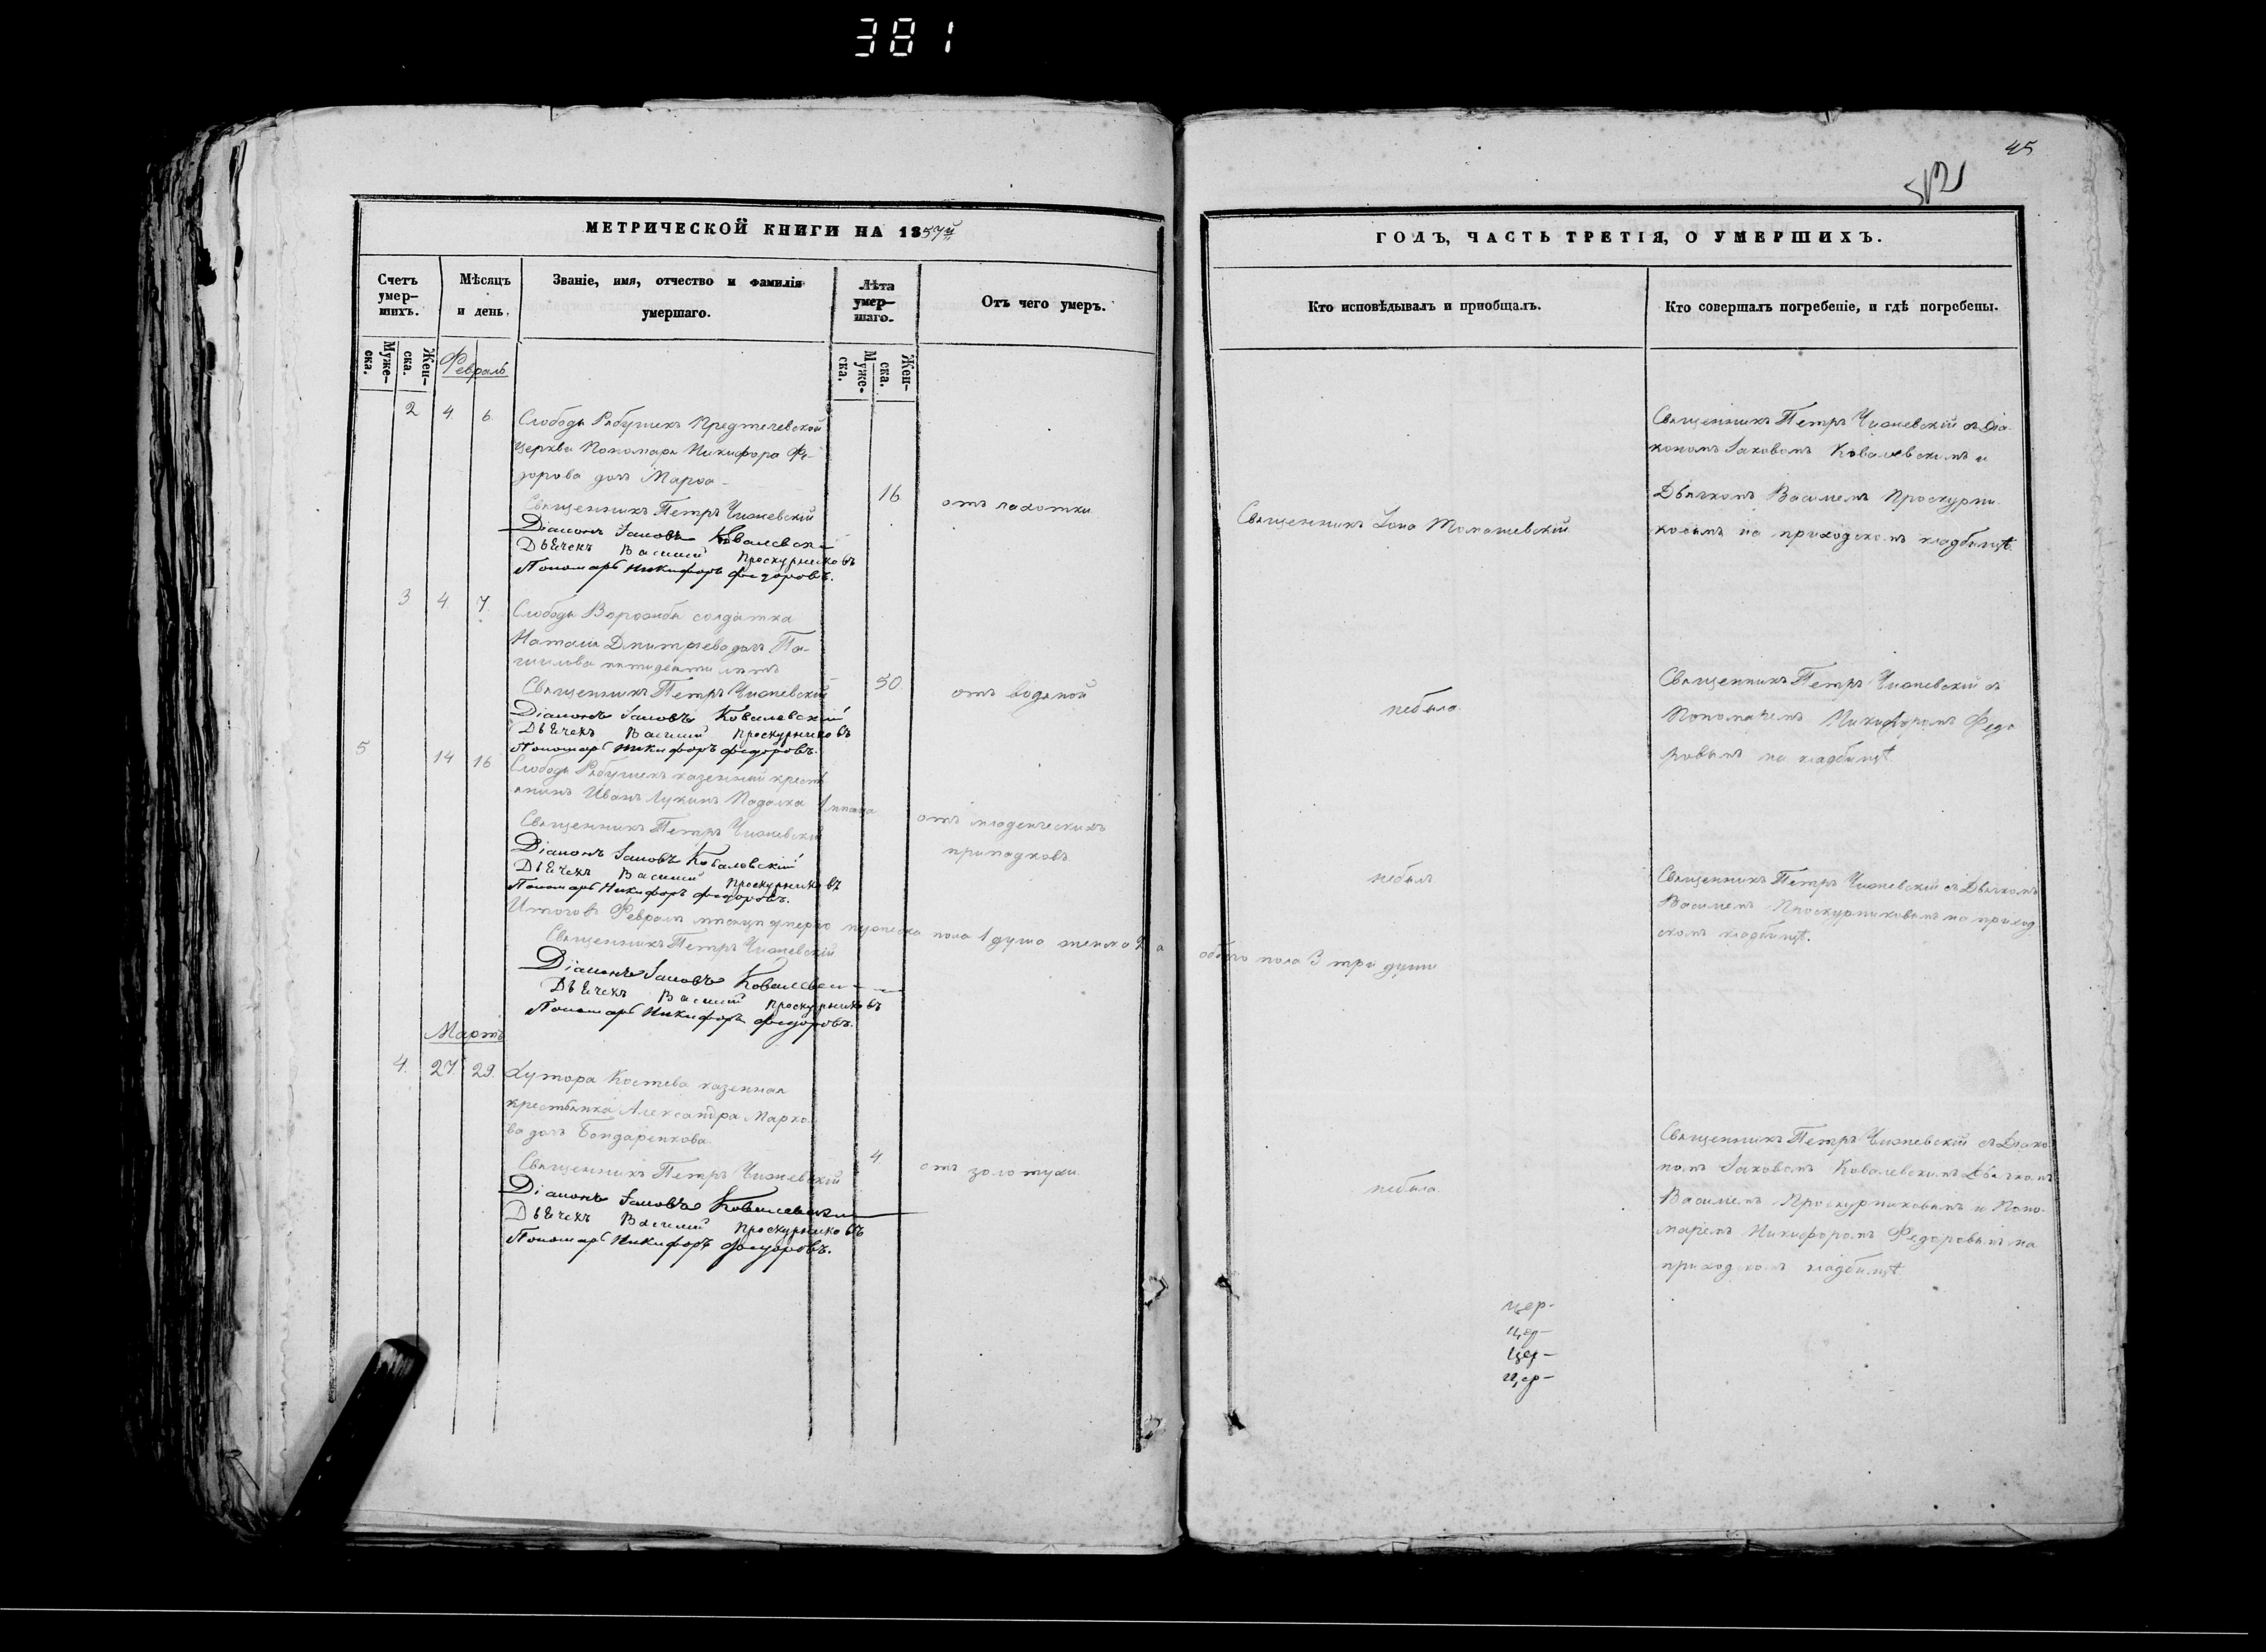 381
45
512
МЕТРИЧЕСКОЙ КНИГИ НА 1857й
ГОДЪ, ЧАСТЬ ТРЕТІЯ, О УМЕРШИХЪ.
Счетъ умер-шихъ.
Мѣсяцъ и день.
Званіе, имя, отчество и фамилія умершаго.
Лѣта умер-шаго.
Отъ чего умеръ.
Кто исповѣдывалъ и пріобщалъ.
Кто совершалъ погребеніе, и гдѣ погребены.
Муже-ска.
Жен-ска.
Муже-ска.
Жен-ска.
Февраль
2 4 6
Слободы Рябушекъ Предтечевской
Церкви Пономаря Никифора Фе-
дорова дочь Марѳа
16
Священникъ Петръ Чижевскій
Діаконъ Іаковъ Ковалевскій
Дьячекъ Василий Проскурниковъ
Пономарь Никифоръ Федоровъ.
отъ чахотки
Священникъ Іона Томашевскій
Священникъ Петръ Чижевскій съ Діа-
кономъ Іаковомъ Ковалевскимъ и
Дьячкомъ Василіемъ Проскурни
ковымъ на приходскомъ кладбищѣ.
3 4 7.
Слободы Ворожбы солдатка
Наталія Дмитріева дочь
пятидесяти лѣтъ
50.
Священникъ Петръ Чижевскій
Діаконъ Іаковъ Ковалевскій
Дьячекъ Василий Проскурниковъ
Пономарь Никифоръ Федоровъ.
отъ водяной
небыла.
Священникъ Петръ Чижевскій съ
Пономаремъ Никифоромъ Федо
ровымъ на кладбищѣ.
5 14 16
Слободы Рябушекъ казенный кресть
янинъ Иванъ Лукинъ Падалка 1 мѣсяца
Священникъ Петръ Чижевскій
Діаконъ Іаковъ Ковалевскій
Дьячекъ Василий Проскурниковъ
Пономарь Никифоръ Федоровъ.
отъ младенческихъ
припадковъ.
небылъ.
Священникъ Петръ Чижевскій съ Дьячкомъ
Василіемъ Проскурниковымъ на приход
скомъ кладбищѣ.
Итого въ Февралѣ мѣсяцѣ умерло мужеска пола 1 душа женска 2 а обоего пола 3 три души
Священникъ Петръ Чижевскій
Діаконъ Іаковъ Ковалевскій
Дьячекъ Василий Проскурниковъ
Пономарь Никифоръ Федоровъ.
Мартъ
4. 27. 29.
Хутора Костева казенная
крестьянка Александра Марко
ва дочь Бондаренкова.
4.
Священникъ Петръ Чижевскій
Діаконъ Іаковъ Ковалевскій
Дьячекъ Василий Проскурниковъ
Пономарь Никифоръ Федоровъ.
отъ золотухи.
небыла.
Священникъ Петръ Чижевскій съ Діако
номъ Іаковомъ Ковалевскимъ Дьячкомъ
Василіемъ Проскурниковымъ и Поно-
маремъ Никифоромъ Федоровымъ на
приходскомъ кладбищѣ.
цер-
цер-
цер-
цер-